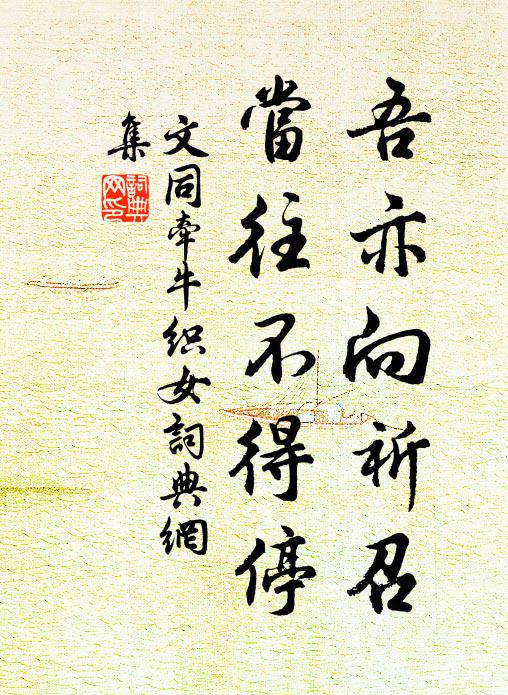 吾亦向祈召
當往不得停
文同牵牛织女詞典網
集
詞典
网印